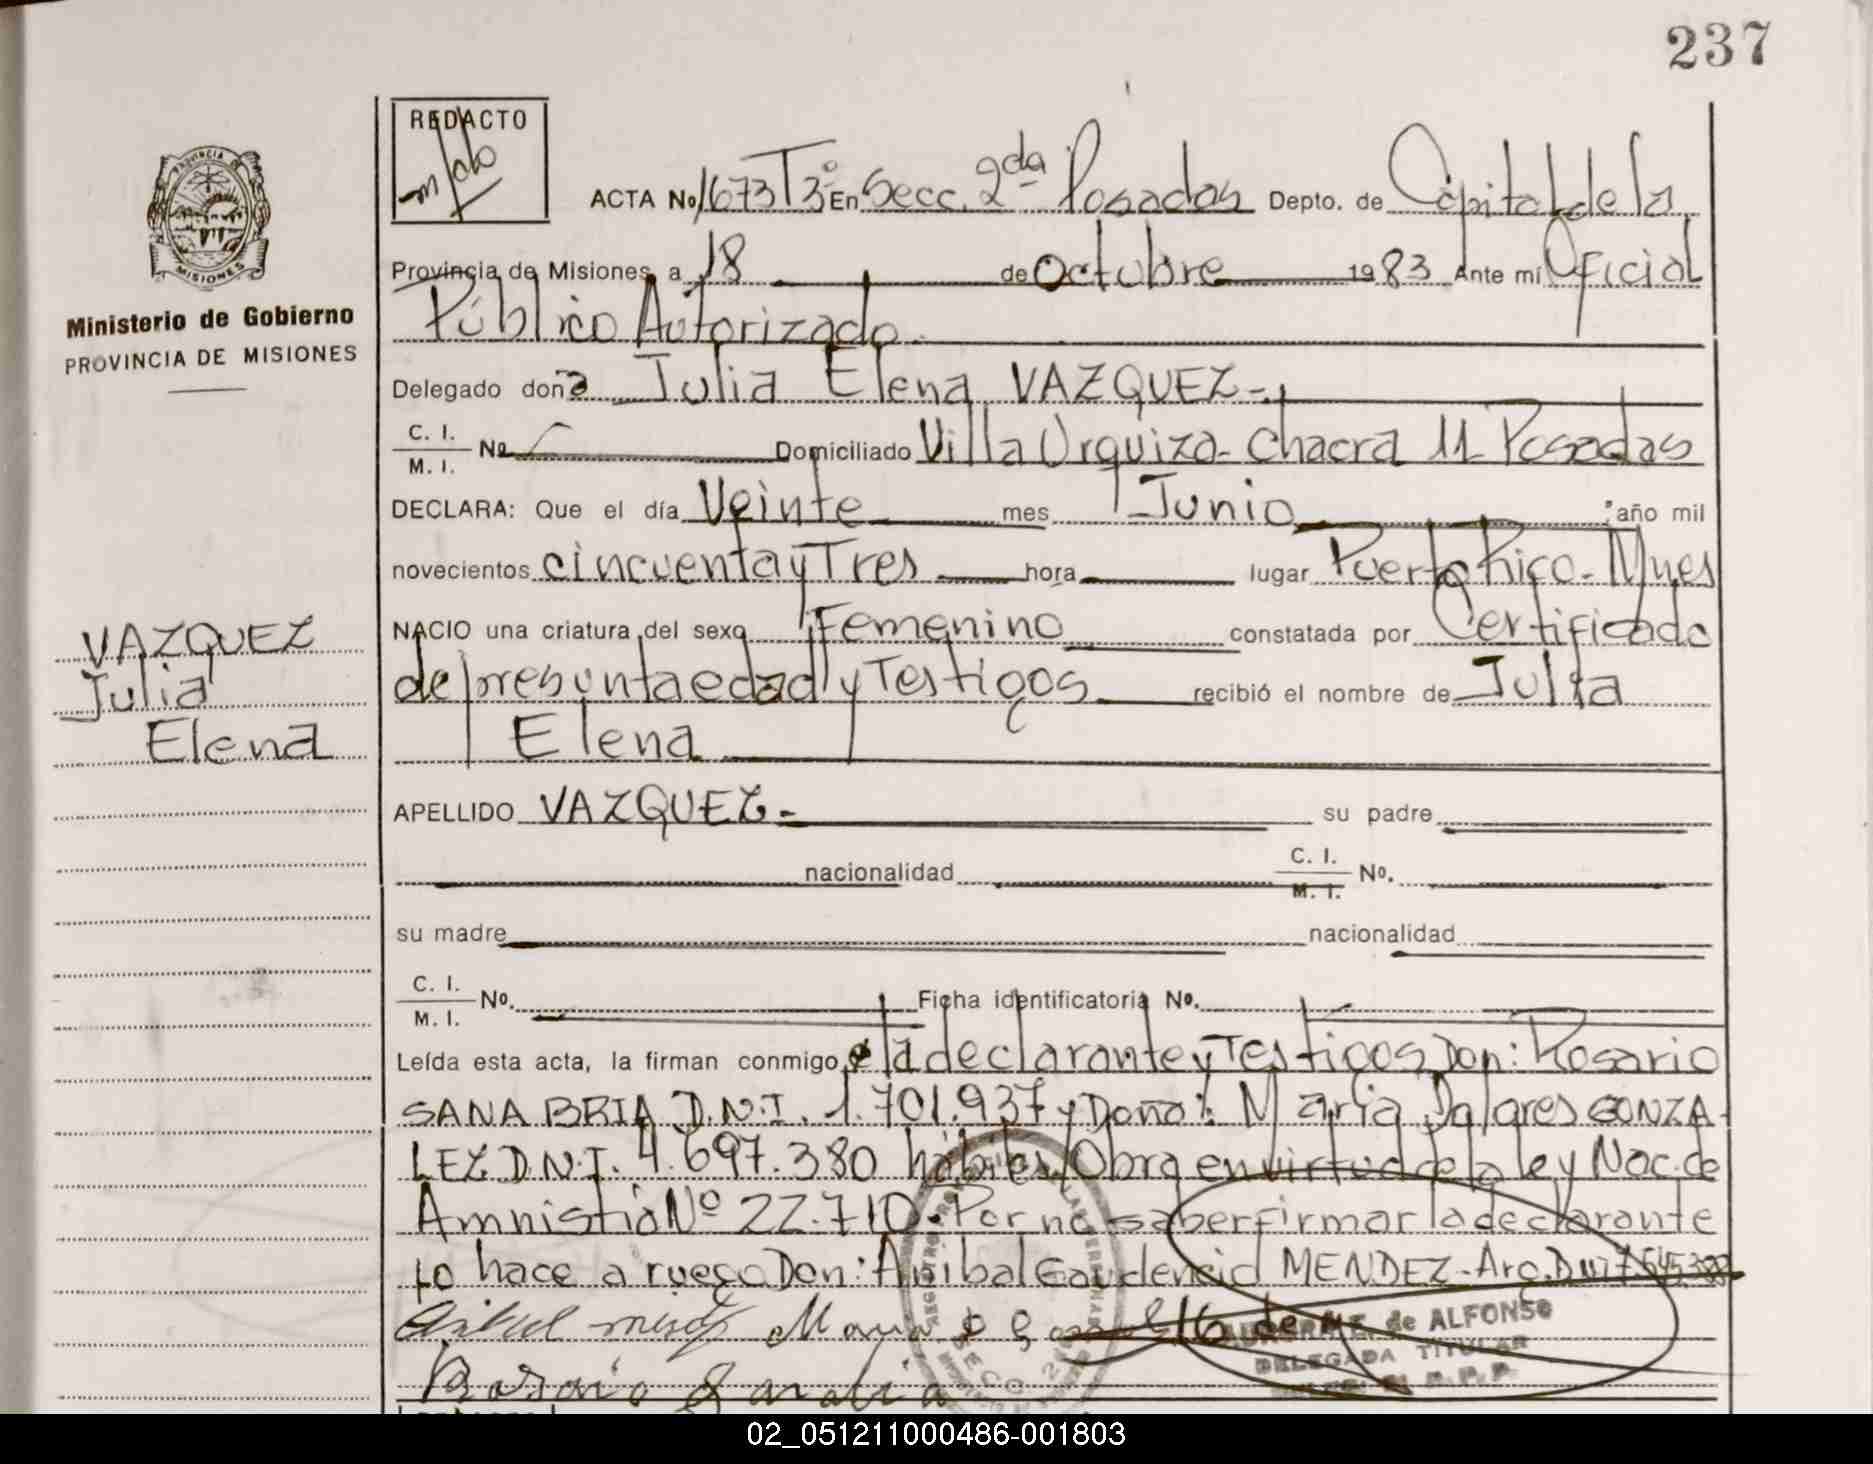 237
REDACTO
PROVINCIA DE
MISIONES
Ministerio de Gobierno
PROVINCIA DE MISIONES
ACTA No 1673 Tº3 En Secc. 2da Posadas Depto. de Capital de la
Provincia de Misiones, a 18 de Octubre 1983 Ante mí Oficial
Público Autorizado.
Delegado doña Julia Elena VAZQUEZ-
C. I.
M. I. No Domiciliado Villa Urquiza- Chacra 11 Posadas
DECLARA: Que el día Veinte mes Junio año mil
novecientos cincuenta y Tres hora lugar Puerto Rico- Mnes
NACIO una criatura del sexo Femenino constatada por Certificado
de presunta edad y Testigos recibió el nombre de Julia
Elena
VAZQUEZ
Julia
Elena
APELLIDO VAZQUEZ- su padre
nacionalidad C. I.
M. I. No.
su madre nacionalidad
C. I.
M. I. No. Ficha identificatoria No.
Leída esta acta, la firman conmigo, la declarante y Testigos Don: Rosario
SANABRIA D.N.I. 1.701.937 y Doña: Maria Dolores GONZA-
LEZ D.N.I. 4.697.380 hábiles, Obra en virtud de la ley Nac. de
Amnistia Nº 22.710. Por no saber firmar la declarante
lo hace a ruego Don: Anibal Gaudencio MENDEZ- Arg. D.N.I 7.645.388
Maria D G
de ALFONSO
DELEGADA TITULAR
Rosario Sanabria
02_051211000486-001803